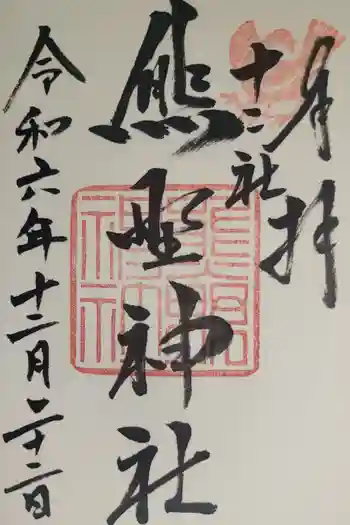 奉拝
十二社
熊野神社
令和六年十二月二十二日
熊野神社